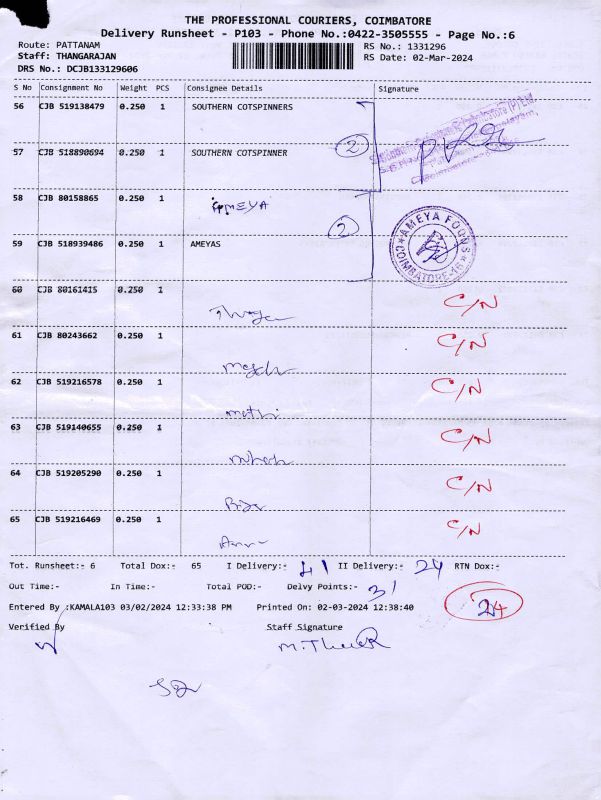 THE PROFESSIONAL COURIERS, COIMBATORE
Delivery Runsheet - P103 - Phone No.:0422-3505555 - Page No.:6
Route: PATTANAM RS No.: 1331296
Staff: THANGARAJAN RS Date: 02-Mar-2024
DRS No.: DCJB133129606
S No Consignment No Weight PCS Consignee Details Signature
56 CJB 519138479 0.250 1 SOUTHERN COTSPINNERS
2
57 CJB 518890694 0.250 1 SOUTHERN COTSPINNER
58 CJB 80158865 0.250 1 AMEYA
2
AMEYA FOODS
COIMBATORE-16
59 CJB 518939486 0.250 1 AMEYAS
60 CJB 80161415 0.250 1 C/N
61 CJB 80243662 0.250 1 C/N
62 CJB 519216578 0.250 1 C/N
63 CJB 519140655 0.250 1 C/N
64 CJB 519205290 0.250 1 C/N
65 CJB 519216469 0.250 1 C/N
Tot. Runsheet:- 6 Total Dox:- 65 I Delivery:- 41 II Delivery:- 24 RTN Dox:-
Out Time:- In Time:- Total POD:- Delvy Points:- 31
24
Entered By :KAMALA103 03/02/2024 12:33:38 PM Printed On: 02-03-2024 12:38:40
Verified By Staff Signature